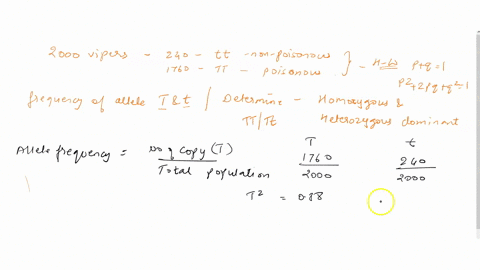 2000 vipers - 240 - tt - non-poisonous } - H-W p+q=1
1760 - TT - poisonous p²+2pq+q²=1
frequency of allele T & t / Determine - Homozygous &
TT/Tt Heterozygous dominant
Allele frequency = No of copy (T) / Total population T 1760/2000 t 240/2000
T² = 0.88